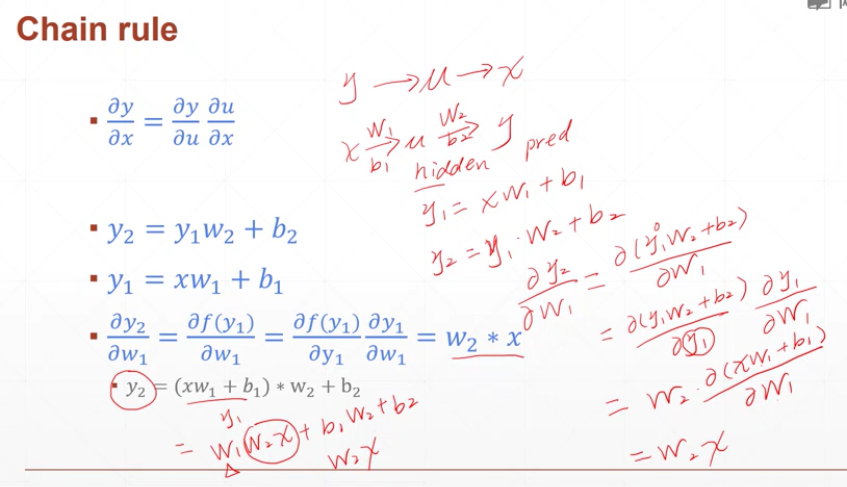 Chain rule
∂y/∂x = ∂y/∂u ∂u/∂x
y₂ = y₁w₂ + b₂
y₁ = xw₁ + b₁
∂y₂/∂w₁ = ∂f(y₁)/∂w₁ = ∂f(y₁)/∂y₁ ∂y₁/∂w₁ = w₂ * x
y₂ = (xw₁ + b₁) * w₂ + b₂
y₁
= W₁W₂X + b₁W₂ + b₂
W₂X
y → u → x
x →(W₁, b₁) u →(W₂, b₂) y pred
hidden
y₁ = xW₁ + b₁
y₂ = y₁·W₂ + b₂
∂y₂/∂W₁ = ∂(y₁W₂ + b₂)/∂W₁
= ∂(y₁W₂ + b₂)/∂y₁ ∂y₁/∂W₁
= W₂ · ∂(xW₁ + b₁)/∂W₁
= W₂X